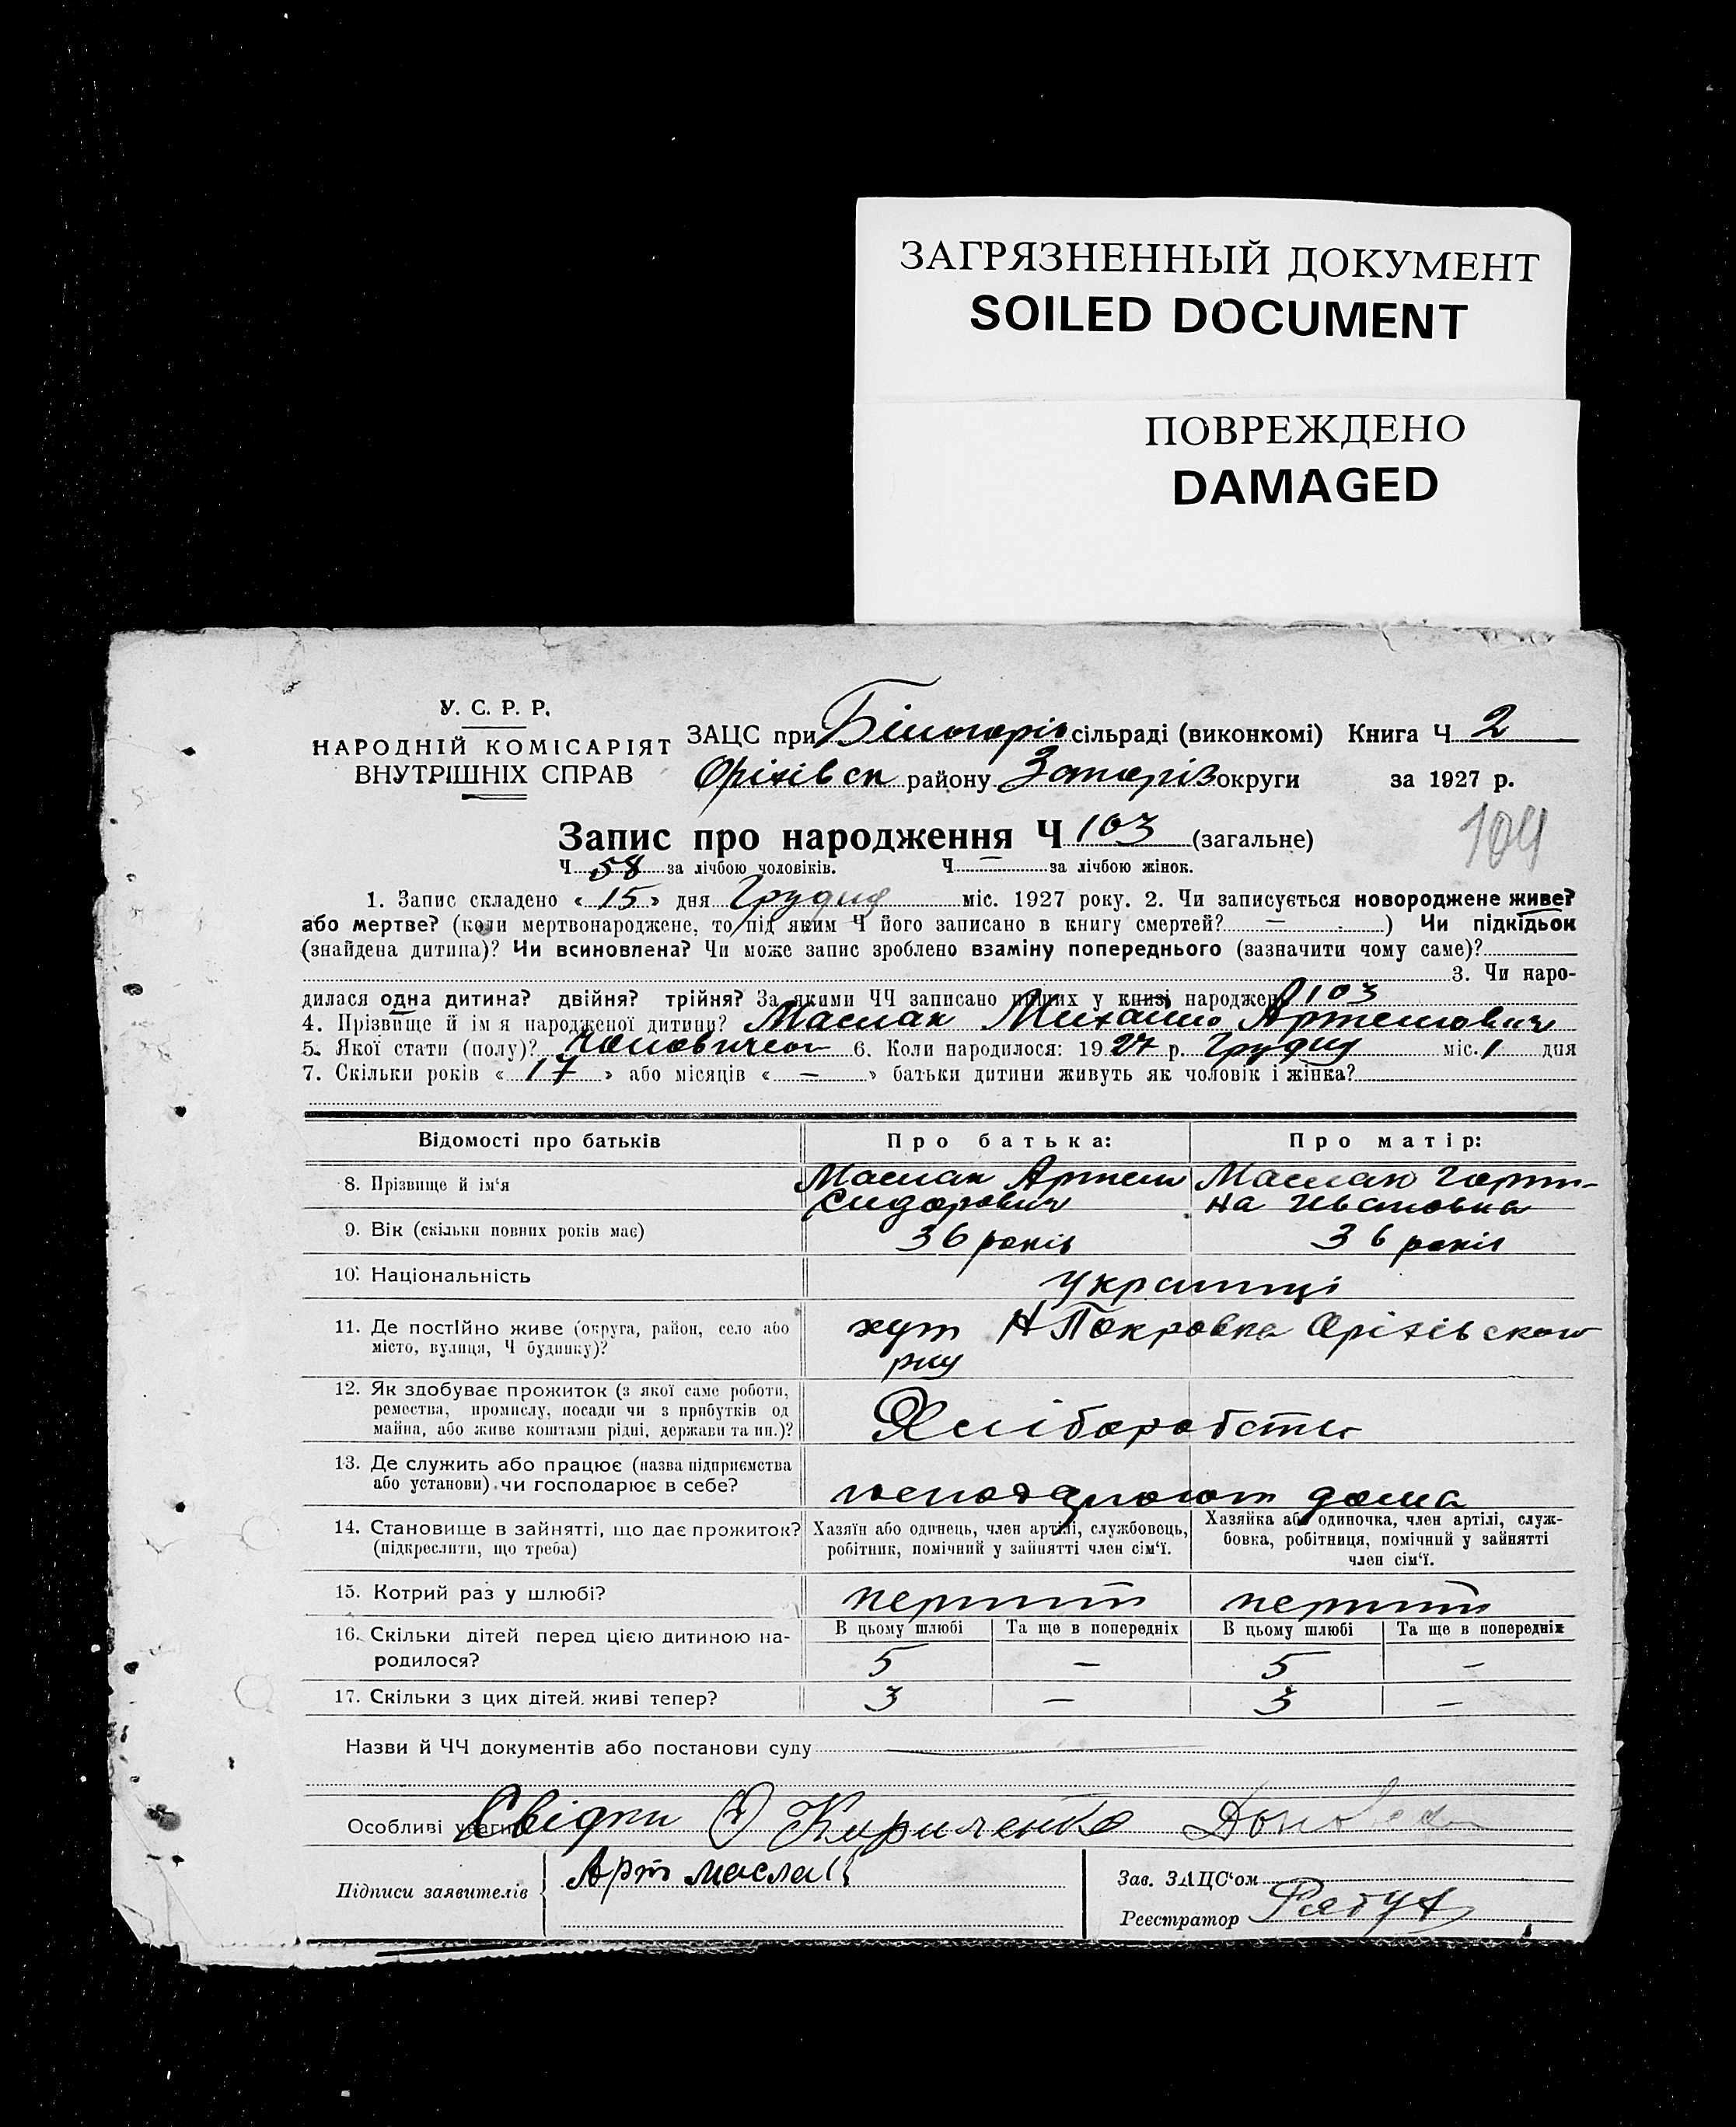 ЗАГРЯЗНЕННЫЙ ДОКУМЕНТ
SOILED DOCUMENT
ПОВРЕЖДЕНО
DAMAGED
У. С. Р. Р.
НАРОДНІЙ КОМІСАРІЯТ
ВНУТРІШНІХ СПРАВ
ЗАЦС при Білогорів сільраді (виконкомі) Книга Ч 2
Оріхівск району Запоріз округи за 1927 р.
104
Запис про народження Ч 103 (загальне)
Ч 58 за лічбою чоловіків. Ч — за лічбою жінок.
1. Запис складено «15» дня Грудня міс. 1927 року. 2. Чи записується новороджене живе?
або мертве? (коли мертвонароджене, то під яким Ч його записано в книгу смертей? — ) Чи підкідьок
(знайдена дитина)? Чи всиновлена? Чи може запис зроблено взаміну попереднього (зазначити чому саме)?
3. Чи наро-
дилася одна дитина? двійня? трійня? За якими ЧЧ записано инших у книзі народжень 103
4. Прізвище й ім'я народженої дитини? Маслак Михайло Артемович
5. Якої стати (полу)? 6. Коли народилося: 1927 р. Грудня міс. 1 дня
7. Скільки років «17» або місяців «—» батьки дитини живуть як чоловік і жінка?
Відомості про батьків Про батька: Про матір:
8. Прізвище й ім‘я Маслак Артем Сидорович Маслак Горпи-на Ивановна
9. Вік (скільки повних років має) 36 років 36 років
10. Національність українці
11. Де постійно живе (округа, район, село або
місто, вулиця, Ч будинку)? хут Н Покровка Оріхівского
рну
12. Як здобуває прожиток (з якої саме роботи,
ремества, промислу, посади чи з прибутків од
майна, або живе коштами рідні, держави та ин.)? Хліборобство
13. Де служить або працює (назва підприємства
або установи) чи господарює в себе? дома
14. Становище в зайнятті, що дає прожиток?
(підкреслити, що треба)
Хазяїн або одинець, член артілі, службовець,
робітник, помічний у зайнятті член сім‘ї.
Хазяйка або одиночка, член артілі, служ-
бовка, робітниця, помічний у зайнятті
член сім‘ї.
15. Котрий раз у шлюбі? перший перший
16. Скільки дітей перед цією дитиною на-
родилося?
В цьому шлюбі Та ще в попередніх В цьому шлюбі Та ще в попередніх
5 — 5 —
17. Скільки з цих дітей живі тепер? 3 — 3 —
Назви й ЧЧ документів або постанови суду
Особливі уваги Свідки Кириченко
Підписи заявителів Арт маслак
Зав. ЗАЦС‘ом
Реєстратор